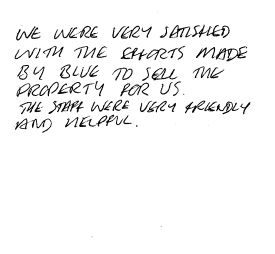 WE WERE VERY SATISFIED
WITH THE EFFORTS MADE
BY BLUE TO SELL THE
PROPERTY FOR US.
THE STAFF WERE VERY FRIENDLY
AND HELPFUL.